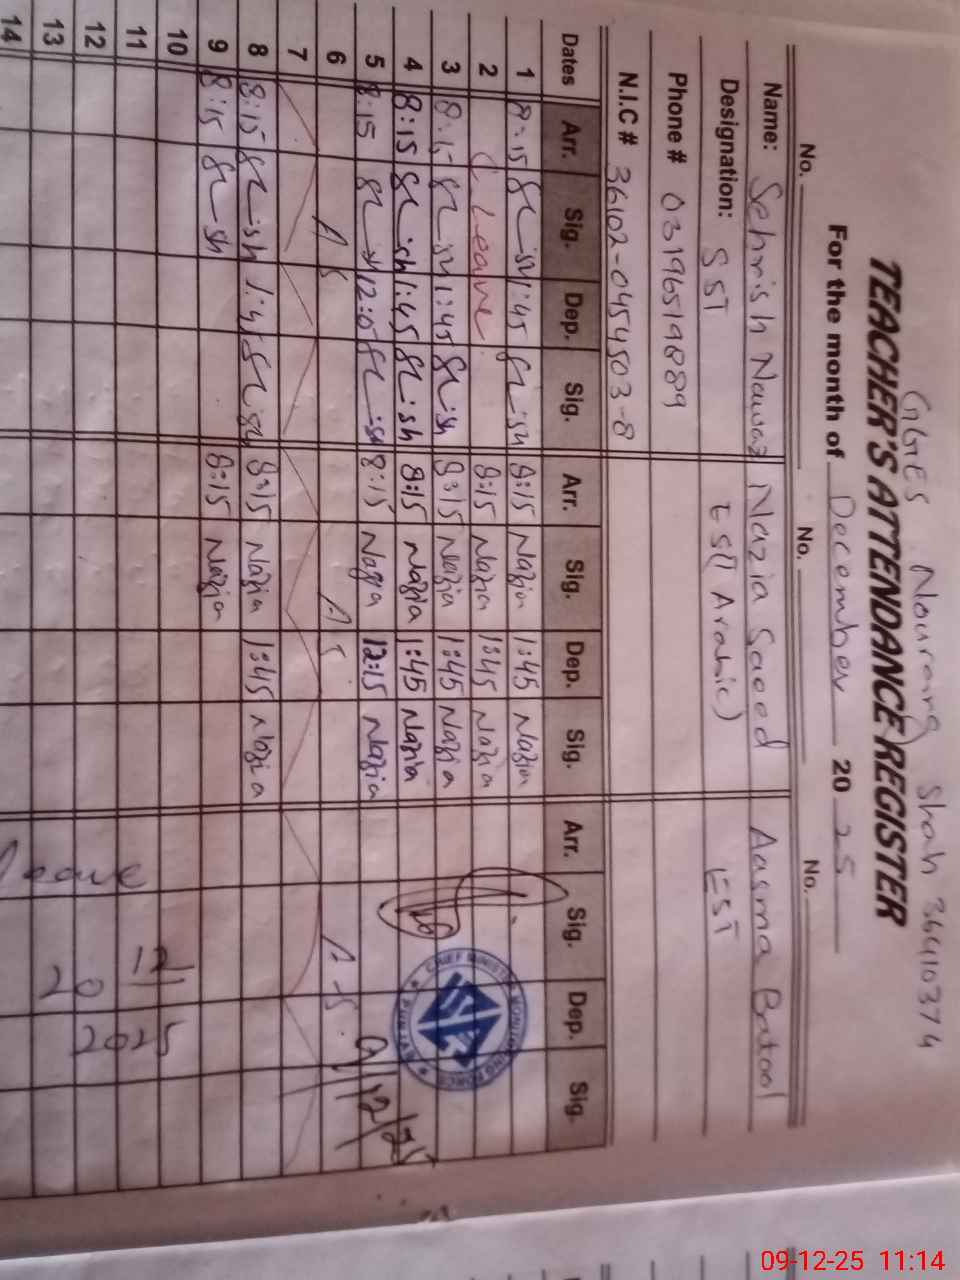 GGES Nourang Shah 36410374
TEACHER'S ATTENDANCE REGISTER
For the month of December 2025
No. No. No.
Name: Sehrish Nawaz Nazia Saeed Aasma Batool
Designation: SST EST Arabic) EST
Phone # 03196519889
N.I.C # 36102-0454503-8
Dates Arr. Sig. Dep. Sig. Arr. Sig. Dep. Sig. Arr. Sig. Dep. Sig.
1 8:15 1:45 8:15 Nazia 1:45 Nazia
2 C Leave 8:15 Nazia 1:45 Nazia
3 8:15 1:45 8:15 Nazia 1:45 Nazia
4 8:15 1:45 8:15 Nazia 1:45 Nazia
5 8:15 8:15 Nazia 12:15 Nazia 9/12/25
6
7
8 8:15 1:45 8:15 Nazia 1:45 Nazia
9 8:15 8:15 Nazia
10
11 12
12 2025
13 20
14 Leave
CHIEF MINISTER MONITORING FORCE
PUNJAB
09-12-25 11:14